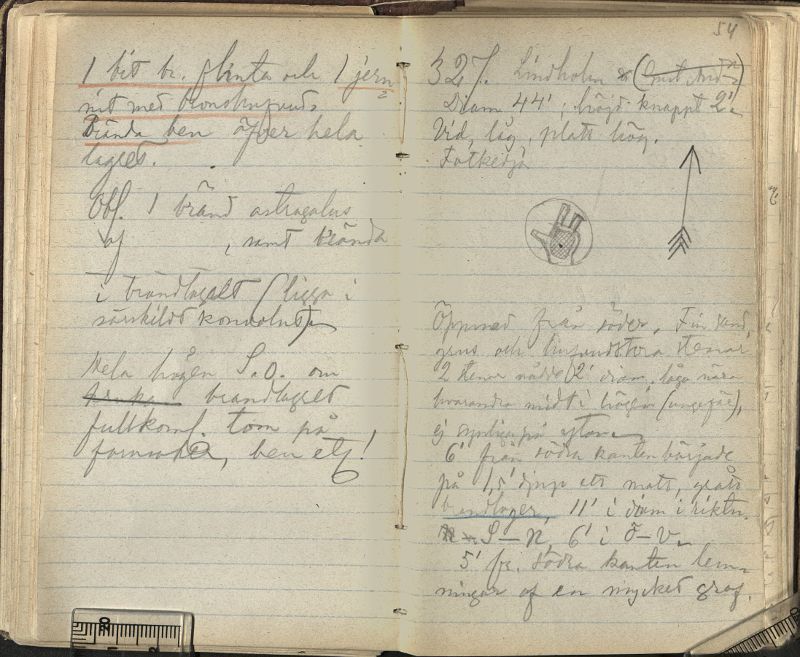 1 bit br. flinta och 1 jern
nit med bronshufvud.
Brända ben öfver hela
lagret.
Obs. 1 bränd astragalus
af , samt brända
i brandlagret (ligga i
särskildt konvolut)
Hela högen S.O. om
brandlagret
fullkoml. tom på
fornsaker, ben etc!
54
327. Lindholm
Diam 44', höjd knappt 2'.
Vid, låg, platt hög.
Fotkedja
Öppnad från söder. Fin sand,
grus och
2 stenar 2' diam. låga nära
hvarandra midt i högen (ungefär),
ej synliga på ytan.
6' från södra kanten började
på 1,5' djup ett matt, grått
brandlager, 11' i diam i riktn.
S–N, 6' i Ö–V.
5' fr. södra kanten lem-
ningar af en mycket grof
20